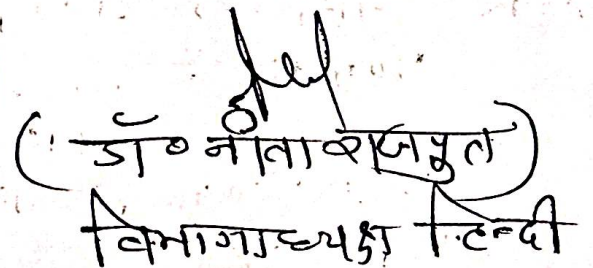 (डॉ० नीता राजपूत)
विभागाध्यक्ष हिन्दी